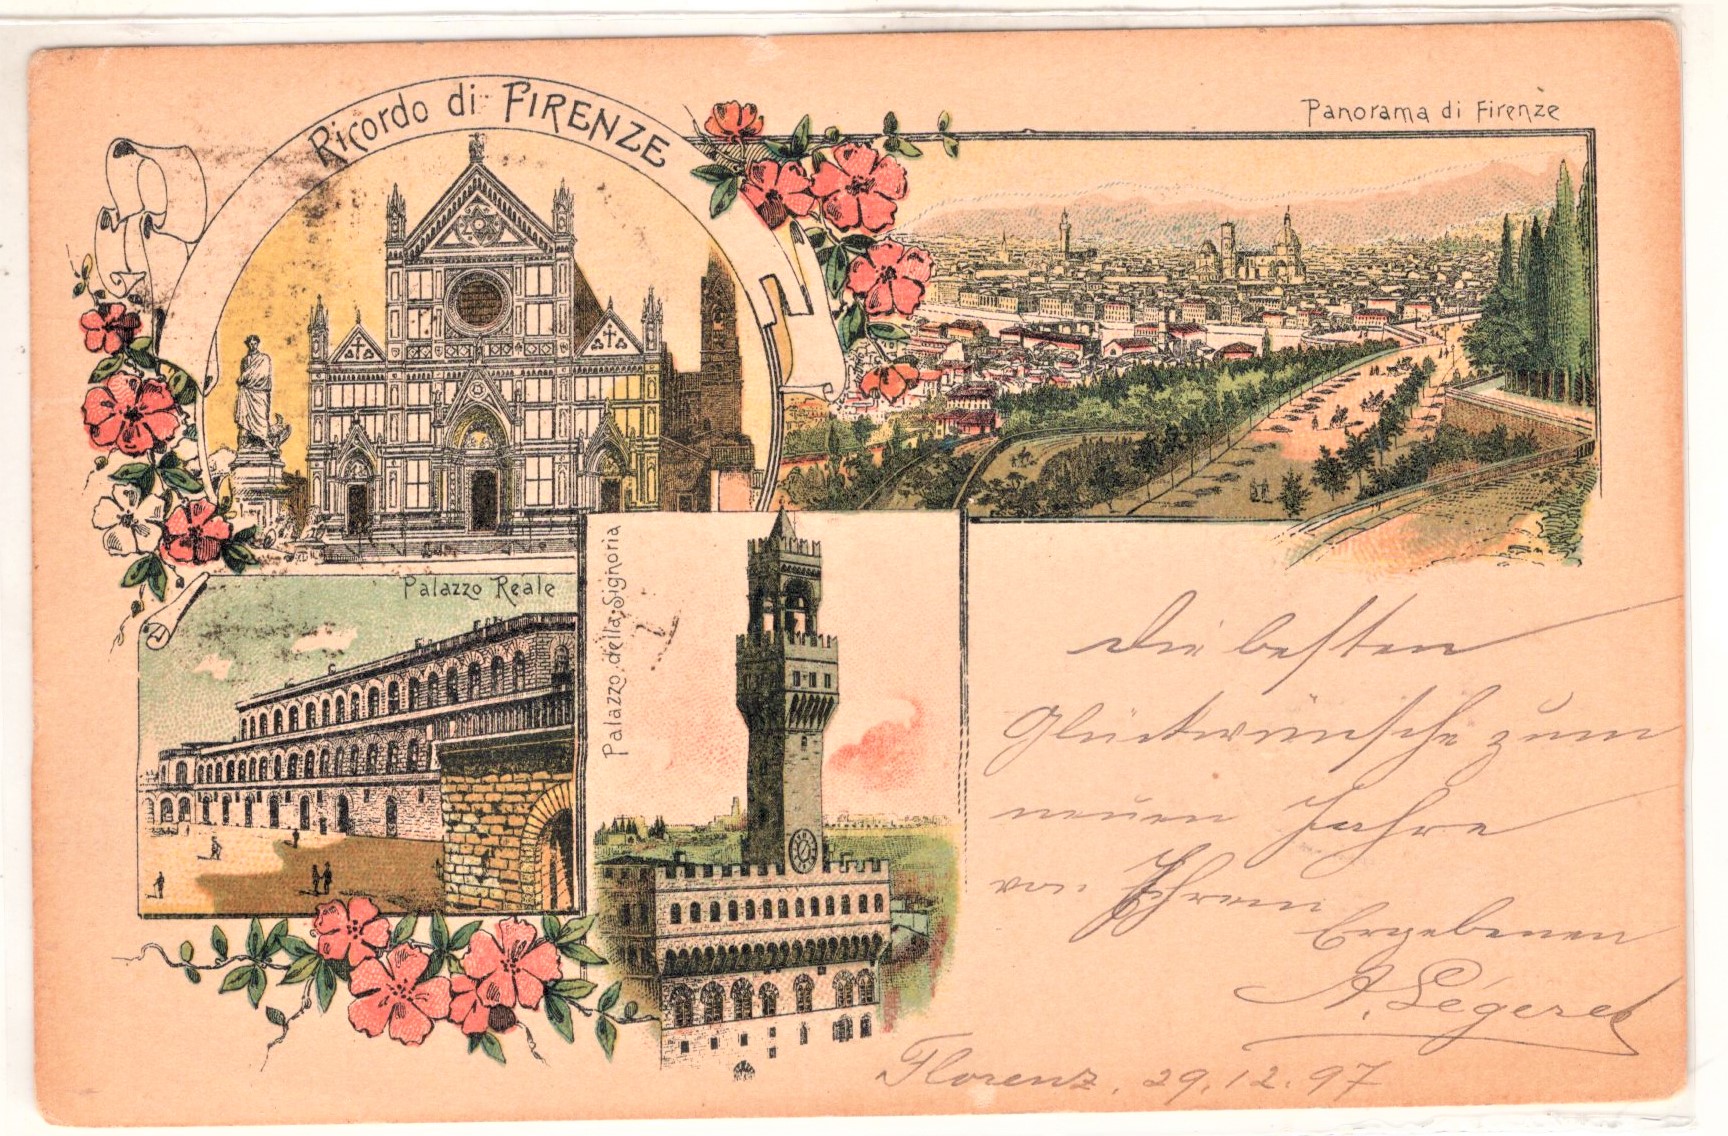 Ricordo di FIRENZE
Panorama di Firenze
Palazzo Reale
Palazzo della Signoria
Die besten
Glückwünsche zum
neuen Jahre
von Ihrem
Ergebenen
A. Légeret
Florenz, 29.12.97